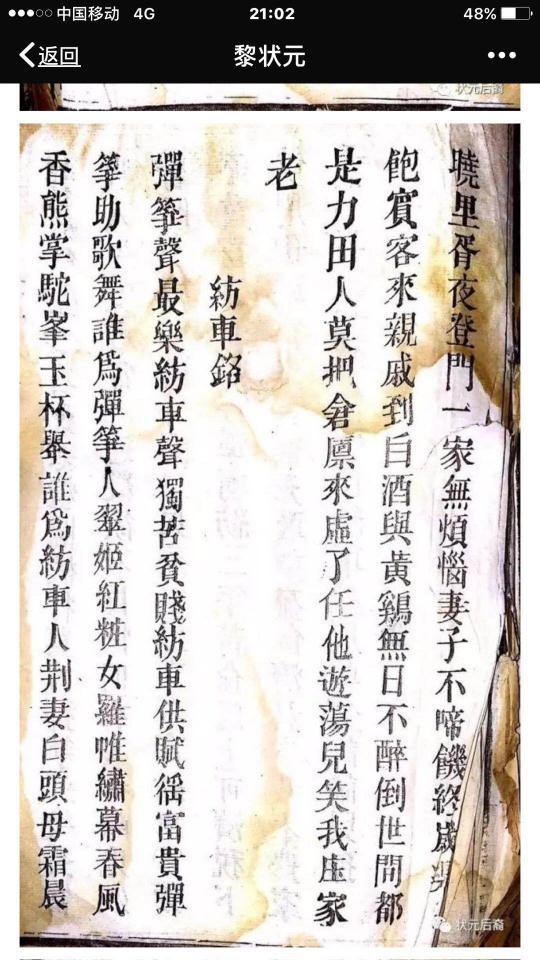 中国移动 4G 21:02 48%
返回 黎状元
状元后裔
曉里胥夜登門一家無煩惱妻子不啼饑終歲
飽賓客來親戚到白酒與黃鷄無日不醉倒世間都
是力田人莫把倉廩來虛了任他遊蕩兒笑我庄家
老
紡車銘
彈箏聲最樂紡車聲獨苦貧賤紡車供賦徭富貴彈
箏助歌舞誰爲彈箏人翠姬紅粧女羅帷繡幕春風
香熊掌駝峯玉杯舉誰爲紡車人荆妻白頭母霜晨
状元后裔